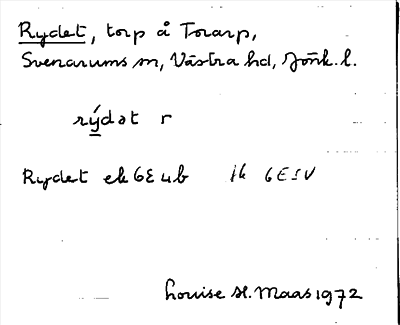 Rydet, torp å Torarp,
Svenarums sn, Västra hd, Jönk. l.
rýdət r
Rydet ek 6E4b jk 6E5V
Louise H. Maas 1972